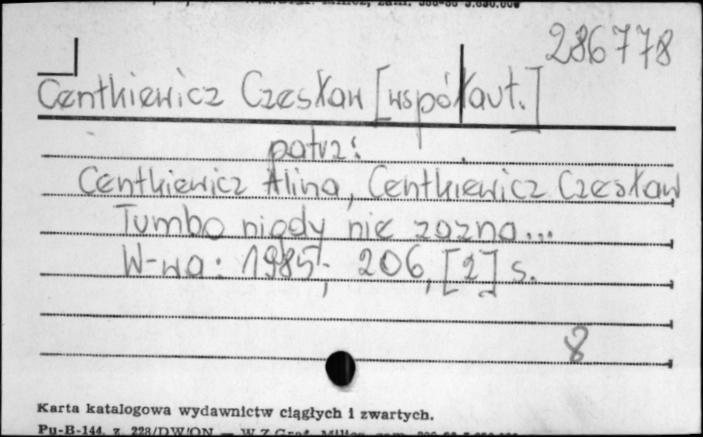 286778
Centkiewicz Czesław [współaut.]
patrz:
Centkiewicz Alina, Centkiewicz Czesław
Tumbo nigdy nie zazna...
W-wa: 1985; 206, [2] s.
8
Karta katalogowa wydawnictw ciągłych i zwartych.
Pu-B-144, z. 228/DW/ON — W.Z.Graf.